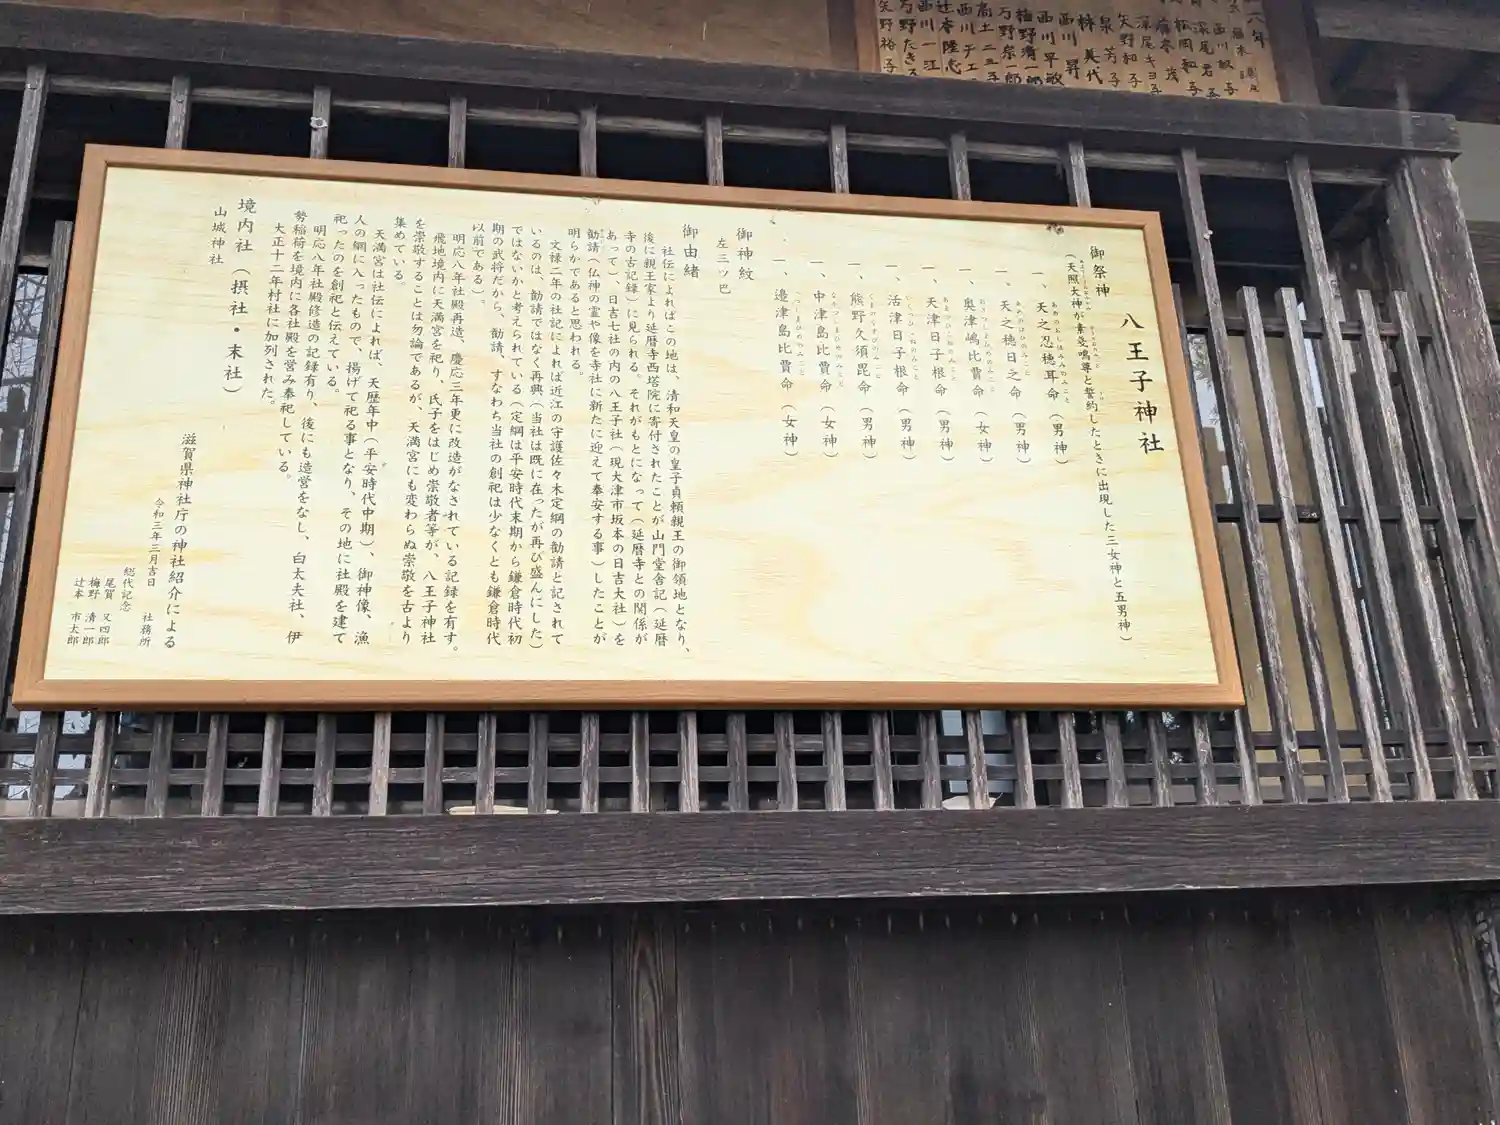 八王子神社
御祭神
(天照大神が素戔嗚尊と誓約したときに出現した三女神と五男神)
一、天之忍穂耳命(男神)
一、天之穂日之命(男神)
一、奥津嶋比賣命(女神)
一、天津日子根命(男神)
一、活津日子根命(男神)
一、熊野久須毘命(男神)
一、中津島比賣命(女神)
一、邉津島比賣命(女神)
御神紋
左三ツ巴
御由緒
社伝によればこの地は、清和天皇の皇子貞頼親王の御領地となり、
後に親王家より延暦寺西塔院に寄付されたことが山門堂舎記(延暦
寺の古記録)に見られる。それがもとになって(延暦寺との関係が
あって)、日吉七社の内の八王子社(現大津市坂本の日吉大社)を
勧請(仏神の霊や像を寺社に新たに迎えて奉安する事)したことが
明らかであると思われる。
文禄二年の社記によれば近江の守護佐々木定綱の勧請と記されて
いるのは、勧請ではなく再興(当社は既に在ったが再び盛んにした)
ではないかと考えられている(定綱は平安時代末期から鎌倉時代初
期の武将だから、勧請、すなわち当社の創祀は少なくとも鎌倉時代
以前である)。
明応八年社殿再造、慶応三年更に改造がなされている記録を有す。
飛地境内に天満宮を祀り、氏子をはじめ崇敬者等が、八王子神社
を崇敬することは勿論であるが、天満宮にも変わらぬ崇敬を古より
集めている。
天満宮は社伝によれば、天歴年中(平安時代中期)、御神像、漁
人の網に入ったもので、揚げて祀る事となり、その地に社殿を建て
祀ったのを創祀と伝えている。
明応八年社殿修造の記録有り、後にも造営をなし、白太夫社、伊
勢稲荷を境内に各社殿を営み奉祀している。
大正十二年村社に加列された。
境内社(摂社・末社)
山城神社
滋賀県神社庁の神社紹介による
令和三年三月吉日 社務所
総代記念
尾賀 又四郎
梅野 清一郎
辻本 市太郎